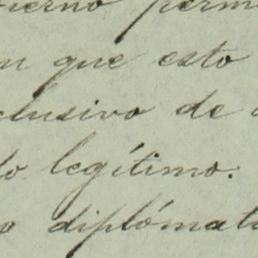 ierno perm
n que esto
clusivo de
lo legítimo.
o diplómat